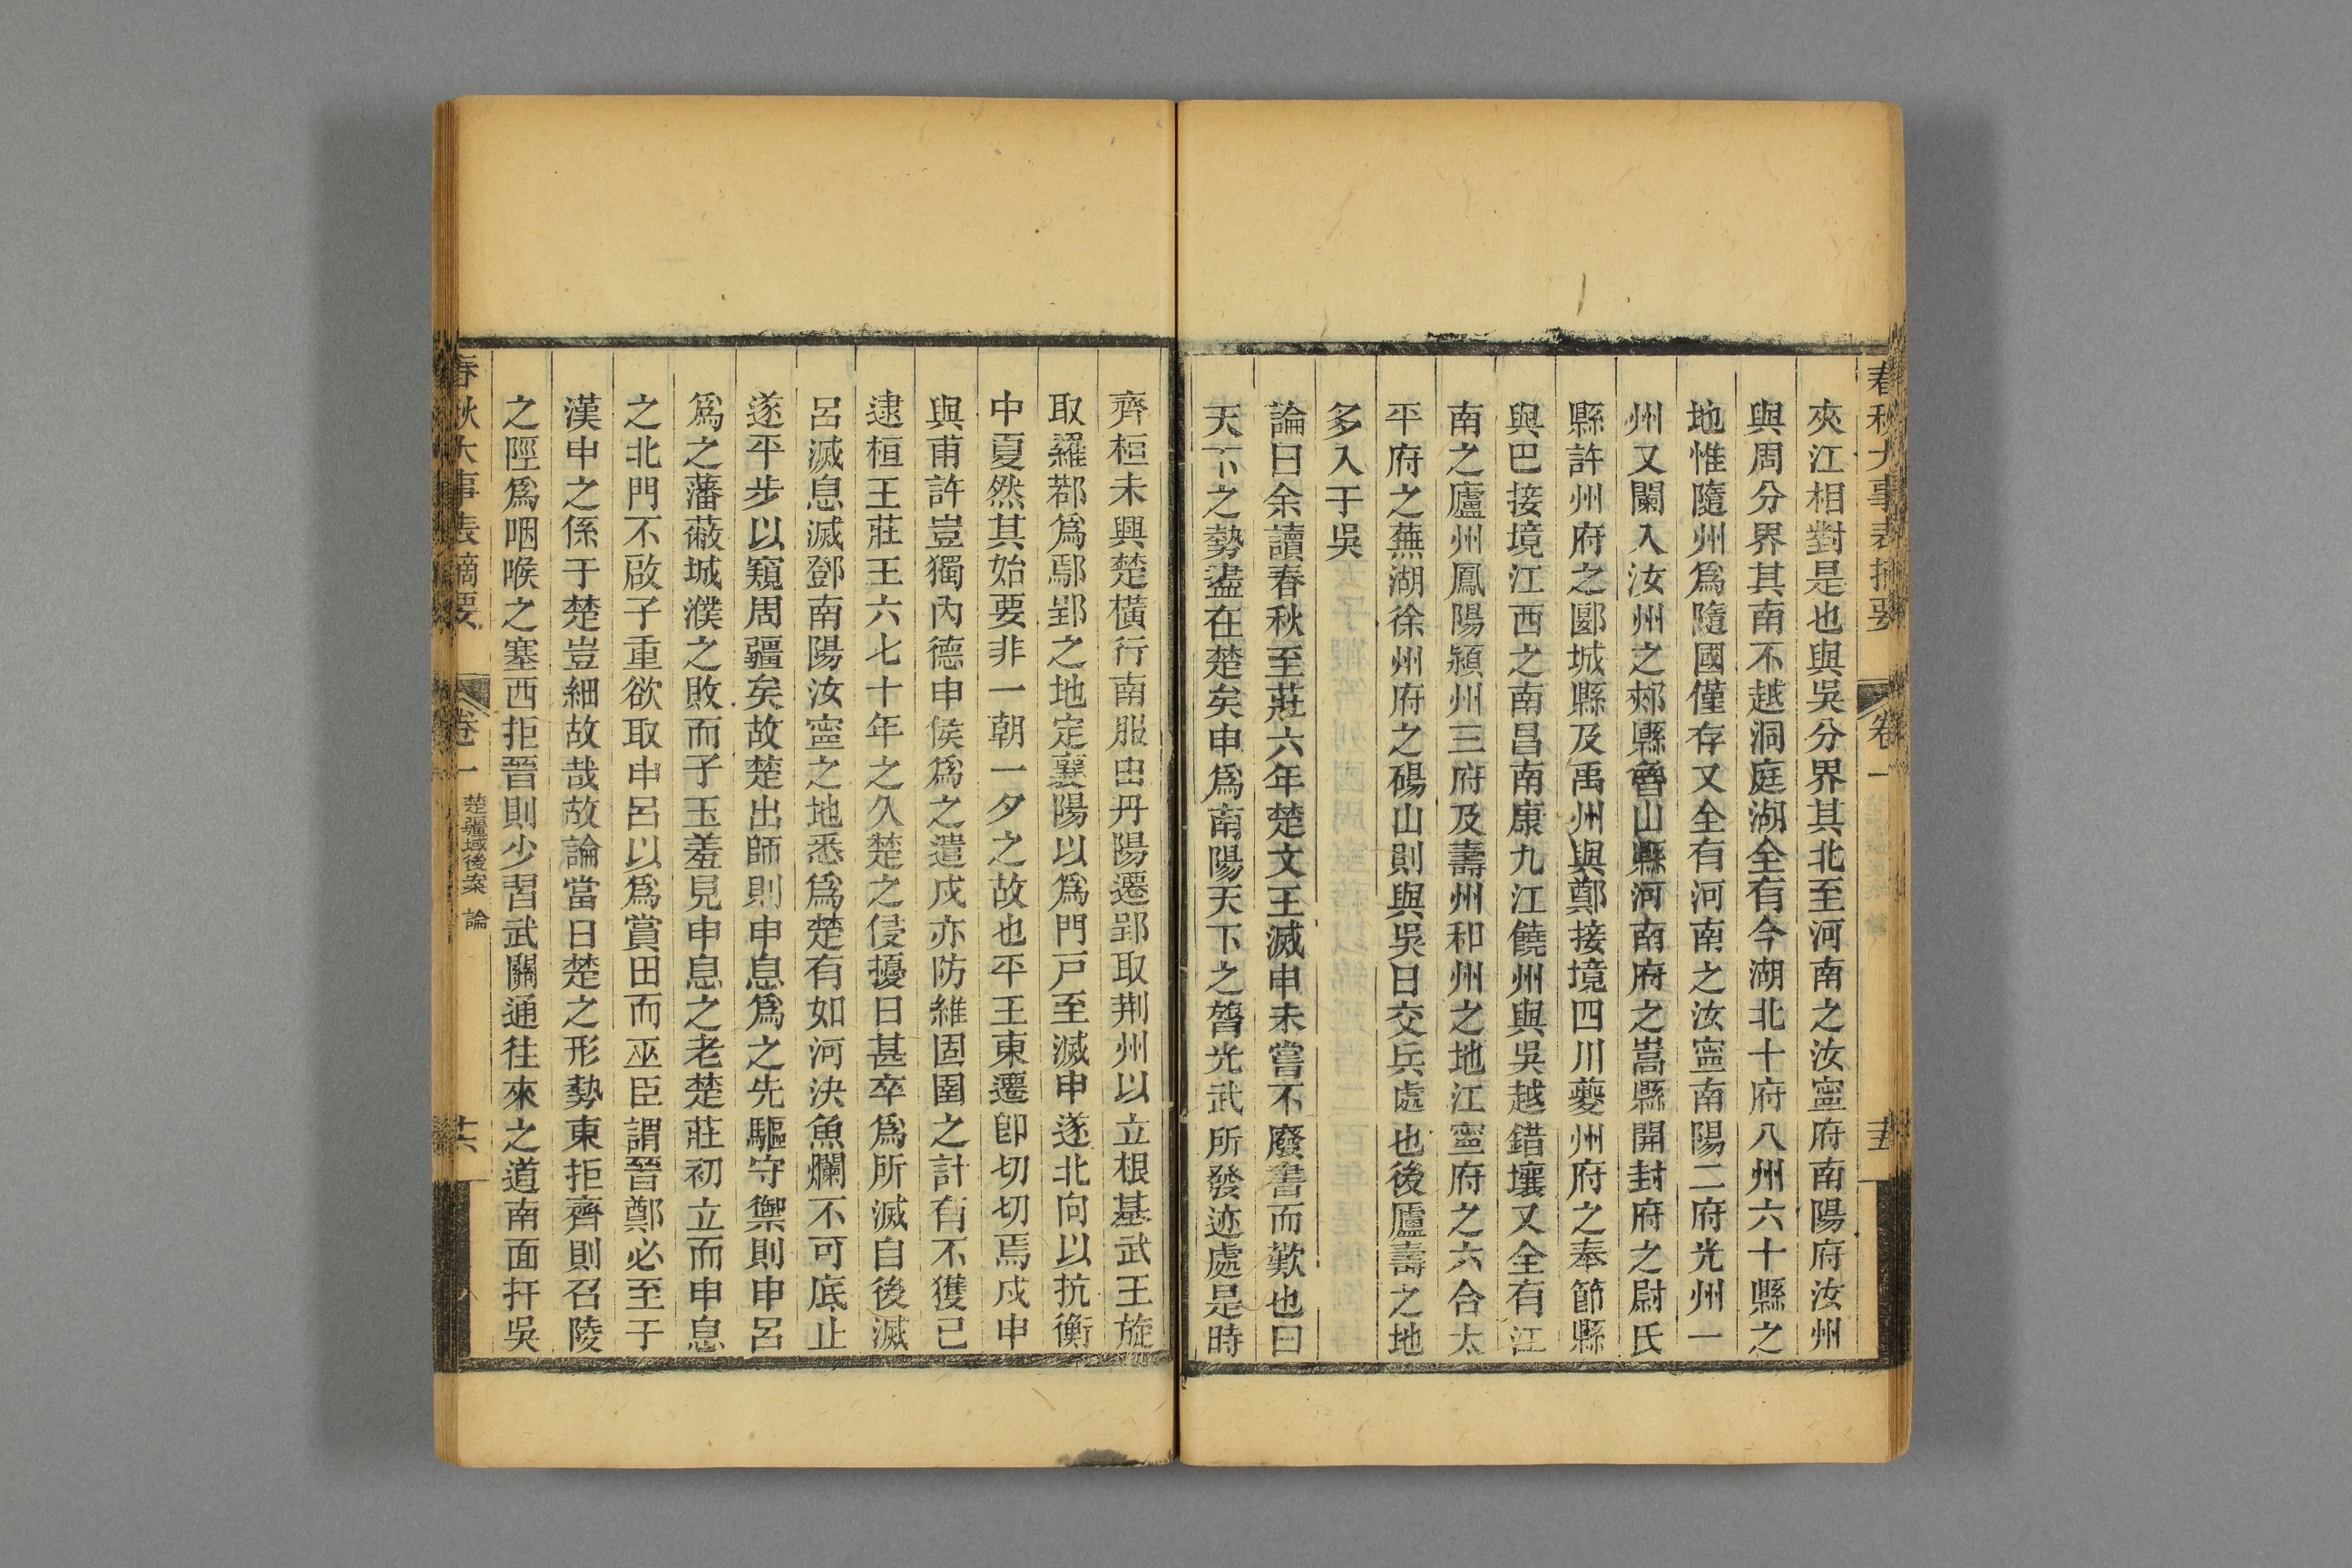 春秋大事表摘要 卷一
夾江相對是也與吳分界其北至河南之汝寧府南陽府汝州
與周分界其南不越洞庭湖全有今湖北十府八州六十縣之
地惟隨州爲隨國僅存又全有河南之汝寧南陽二府光州一
州又闌入汝州之郟縣魯山縣河南府之嵩縣開封府之尉氏
縣許州府之郾城縣及禹州與鄭接境四川夔州府之奉節縣
與巴接境江西之南昌南康九江饒州與吳越錯壤又全有江
南之廬州鳳陽潁州三府及壽州和州之地江寧府之六合太
平府之蕪湖徐州府之碭山則與吳日交兵處也後廬壽之地
多入于吳
論曰余讀春秋至莊六年楚文王滅申未嘗不廢書而歎也曰
天下之勢盡在楚矣申爲南陽天下之膂光武所發迹處是時
齊桓未興楚橫行南服由丹陽遷郢取荆州以立根基武王旋
取羅鄀爲鄢郢之地定襄陽以爲門戸至滅申遂北向以抗衡
中夏然其始要非一朝一夕之故也平王東遷卽切切焉戍申
與甫許豈獨內德申侯爲之遣戍亦防維固圉之計有不獲已
逮桓王莊王六七十年之久楚之侵擾日甚卒爲所滅自後滅
呂滅息滅鄧南陽汝寧之地悉爲楚有如河決魚爛不可底止
遂平步以窺周疆矣故楚出師則申息爲之先驅守禦則申呂
爲之藩蔽城濮之敗而子玉羞見申息之老楚莊初立而申息
之北門不啟子重欲取申呂以爲賞田而巫臣謂晉鄭必至于
漢申之係于楚豈細故哉故論當日楚之形勢東拒齊則召陵
之陘爲咽喉之塞西拒晉則少習武關通往來之道南面扞吳
春秋大事表摘要 卷一 楚疆域後案 論